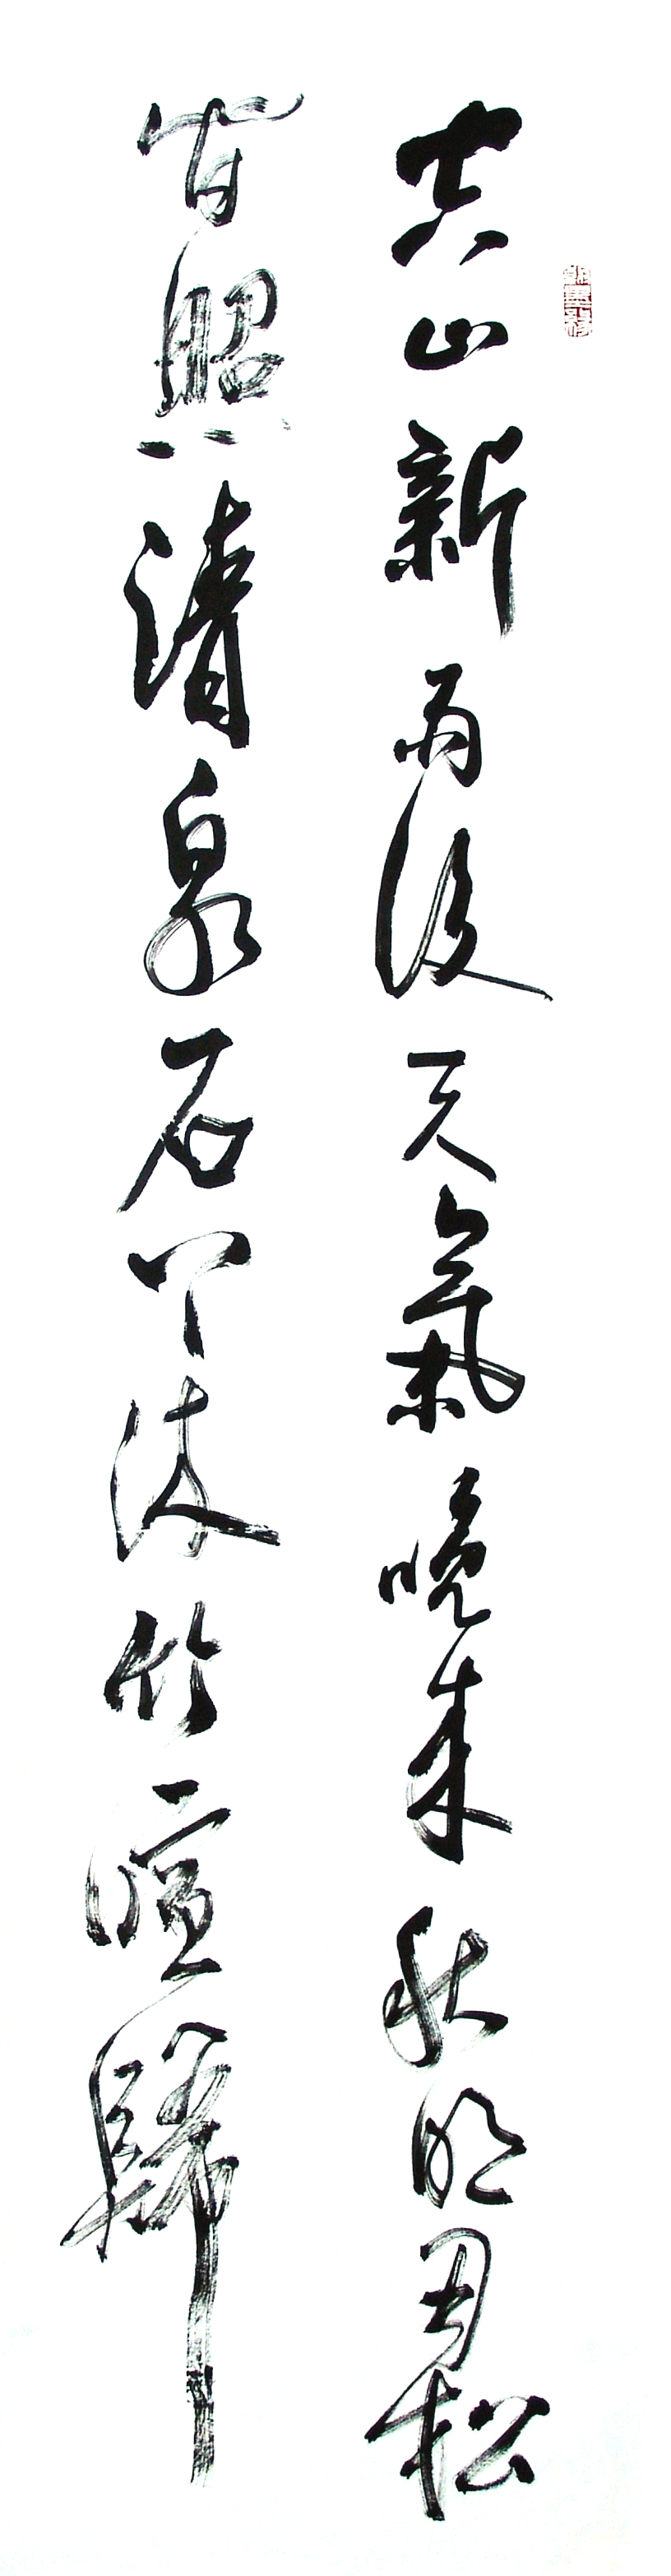 空山新雨後天氣晚來秋明月松
間照清泉石上流竹喧歸